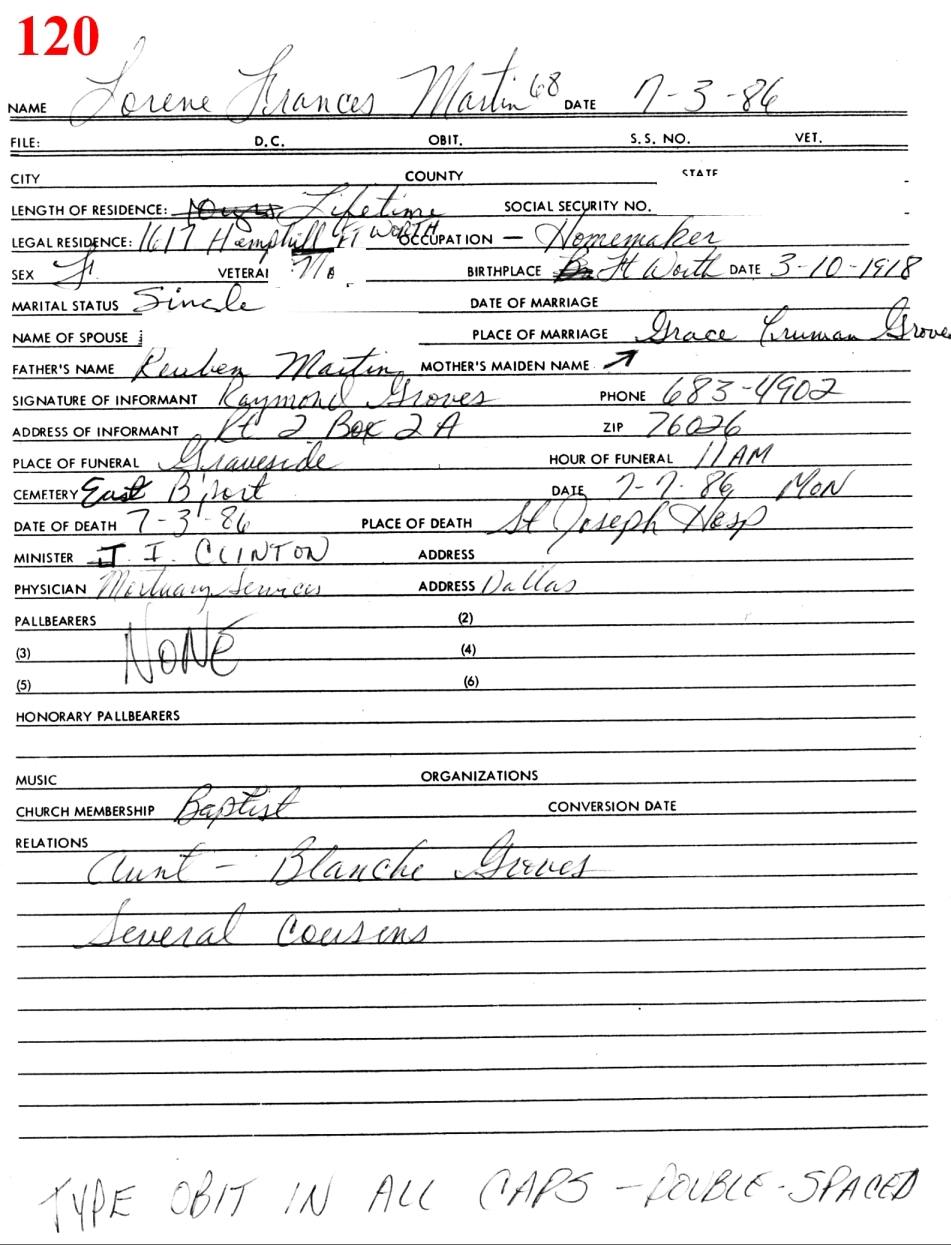 120
NAME Lorene Frances Martin 68 DATE 7-3-86
FILE: D.C. OBIT. S.S. NO. VET.
CITY COUNTY STATE
LENGTH OF RESIDENCE: Lifetime SOCIAL SECURITY NO.
LEGAL RESIDENCE: 1617 Hemphill Ft WORTH OCCUPATION — Homemaker
SEX F VETERAN No BIRTHPLACE Ft Worth DATE 3-10-1918
MARITAL STATUS Single DATE OF MARRIAGE
NAME OF SPOUSE PLACE OF MARRIAGE Grace Truman Groves
FATHER'S NAME Reuben Martin MOTHER'S MAIDEN NAME ↗
SIGNATURE OF INFORMANT Raymond Groves PHONE 683-4902
ADDRESS OF INFORMANT Rt 2 Box 2 A ZIP 76026
PLACE OF FUNERAL Graveside HOUR OF FUNERAL 11 AM
CEMETERY East B'port DATE 7-7-86 MON
DATE OF DEATH 7-3-86 PLACE OF DEATH St Joseph Hosp
MINISTER J. I. CLINTON ADDRESS
PHYSICIAN Mortuary Services ADDRESS Dallas
PALLBEARERS (2)
(3) NONE (4)
(5) (6)
HONORARY PALLBEARERS
MUSIC ORGANIZATIONS
CHURCH MEMBERSHIP Baptist CONVERSION DATE
RELATIONS
Aunt - Blanche Groves
Several Cousins
TYPE OBIT IN ALL CAPS - DOUBLE-SPACED